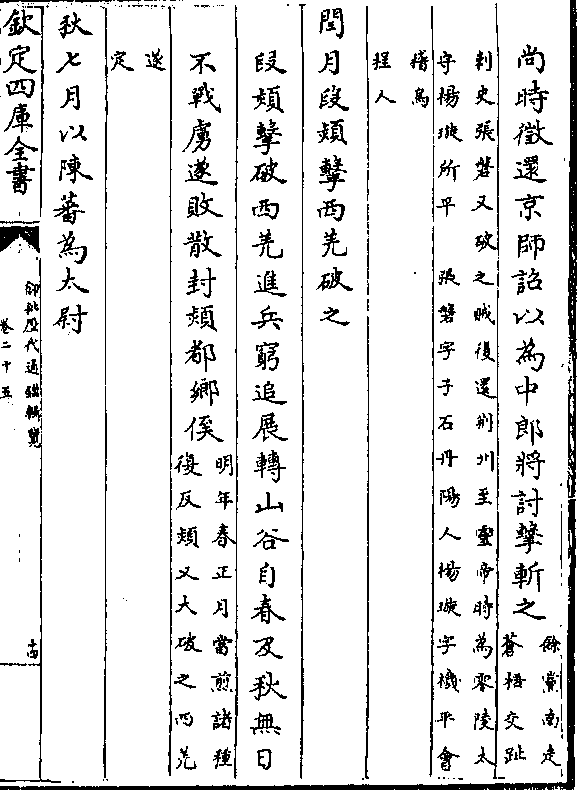 尚時徵還京師詔以為中郎將討擊斬之
餘黨南走
蒼梧交趾
刺史張磐又破之賊復還荆州至靈帝時為零陵太
守楊琁所平 張磐字子石丹陽人楊琁字機平會
稽烏
程人
閏月段熲擊西羌破之
段熲擊破西羌進兵窮追展轉山谷自春及秋無日
不戰虜遂敗散封熲都鄉侯
明年春正月當煎諸種
復反熲又大破之西羌
遂
定
秋七月以陳蕃為太尉
欽定四庫全書
御批歷代通鑑輯覽
卷二十五
十四